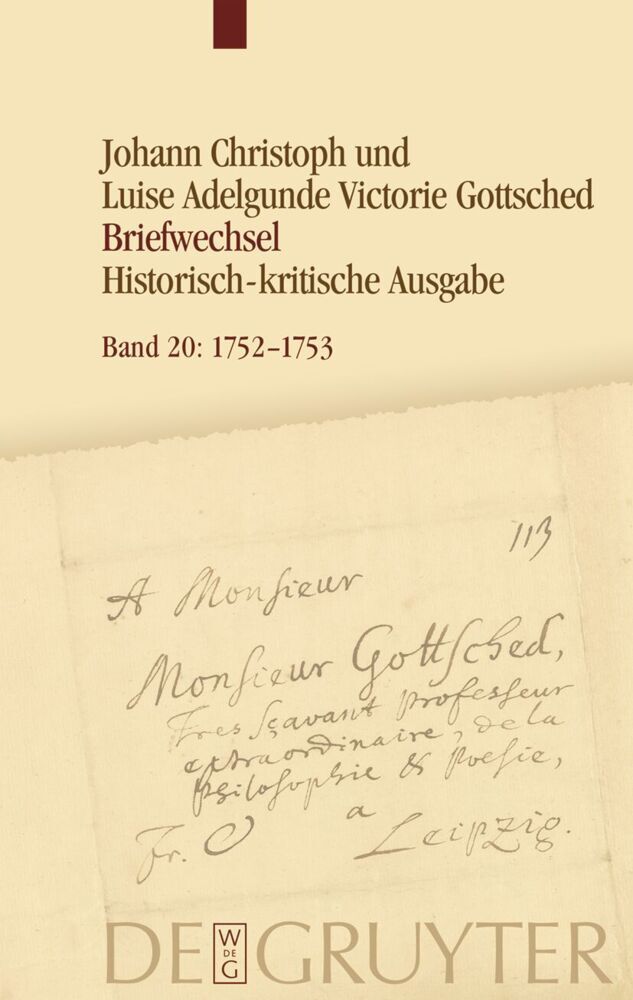 Johann Christoph und
Luise Adelgunde Victorie Gottsched
Briefwechsel
Historisch-kritische Ausgabe
Band 20: 1752–1753
113
A Monsieur
Monsieur Gottsched,
Tres sçavant professeur
extraordinaire, de la
philosophie & Poesie,
a
Fr. Leipzig.
DE GRUYTER
W
DE
G